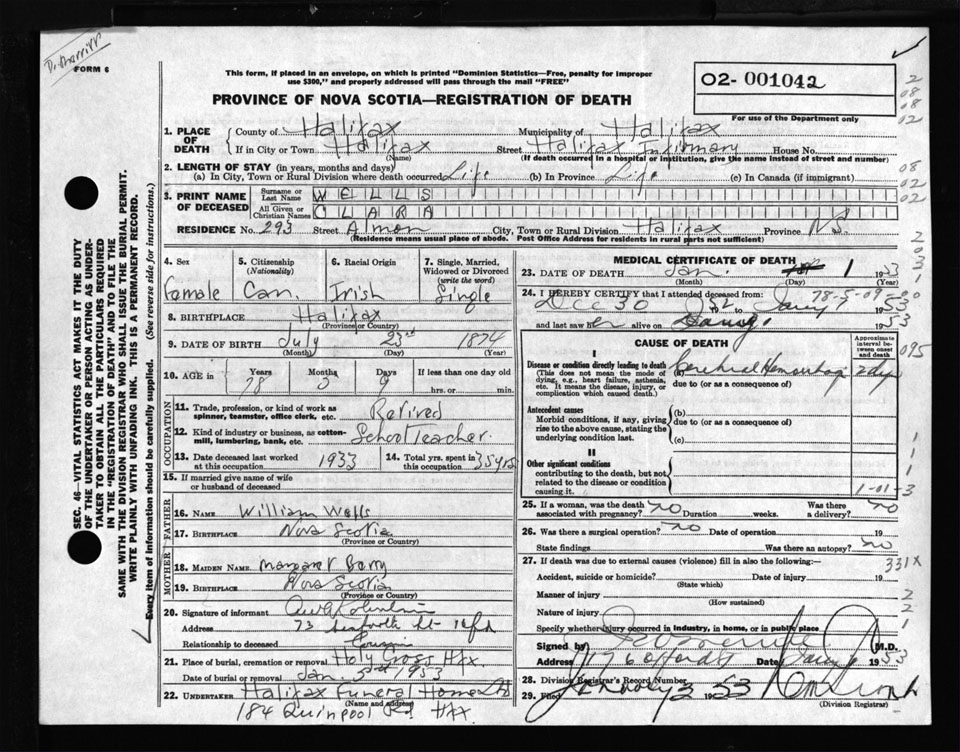 Dr Merritt
FORM 6
This form, if placed in an envelope, on which is printed "Dominion Statistics—Free, penalty for improper
use $300," and properly addressed will pass through the mail "FREE"
02-001042
For use of the Department only
PROVINCE OF NOVA SCOTIA—REGISTRATION OF DEATH
1. PLACE OF DEATH
County of Halifax Municipality of Halifax
If in City or Town Halifax Street Halifax Infirmary House No.
(Name) (If death occurred in a hospital or institution, give the name instead of street and number)
2. LENGTH OF STAY (in years, months and days)
(a) In City, Town or Rural Division where death occurred Life (b) In Province Life (c) In Canada (if immigrant)
3. PRINT NAME OF DECEASED
Surname or Last Name WELLS
All Given or Christian Names CLARA
RESIDENCE No. 293 Street Almon City, Town or Rural Division Halifax Province N.S.
(Residence means usual place of abode. Post Office Address for residents in rural parts not sufficient)
4. Sex Female
5. Citizenship (Nationality) Can.
6. Racial Origin Irish
7. Single, Married, Widowed or Divorced (write the word) Single
8. BIRTHPLACE Halifax
(Province or Country)
9. DATE OF BIRTH July 23rd 1874
(Month) (Day) (Year)
10. AGE in Years Months Days If less than one day
78 5 9 hrs. or min.
OCCUPATION
11. Trade, profession, or kind of work as spinner, teamster, office clerk, etc. Retired
12. Kind of industry or business, as cotton-mill, lumbering, bank, etc. School Teacher.
13. Date deceased last worked at this occupation 1933
14. Total yrs. spent in this occupation 35 yrs
15. If married give name of wife or husband of deceased
FATHER
16. NAME William Wells
17. BIRTHPLACE Nova Scotia
(Province or Country)
MOTHER
18. MAIDEN NAME Margaret Barry
19. BIRTHPLACE Nova Scotia
(Province or Country)
20. Signature of informant
Address 73 Seaforth St - Hfx
Relationship to deceased Cousin
21. Place of burial, cremation or removal Holy Cross Hfx.
Date of burial or removal Jan. 3rd 1953
22. UNDERTAKER Halifax Funeral Home Ltd
(Name and address)
184 Quinpool Rd Hfx
MEDICAL CERTIFICATE OF DEATH
23. DATE OF DEATH Jan. 1 1953
24. I HEREBY CERTIFY that I attended deceased from:
78-5-09
Dec 30 1952 to Jany 1 1953
and last saw her alive on Jany 1 1953
CAUSE OF DEATH
Approximate interval between onset and death
I
Disease or condition directly leading to death
(This does not mean the mode of dying, e.g., heart failure, asthenia, etc. It means the disease, injury, or complication which caused death.)
(a) Cerebral Hemorrhage 2 days
due to (or as a consequence of)
Antecedent causes
Morbid conditions, if any, giving rise to the above cause, stating the underlying condition last.
(b)
due to (or as a consequence of)
(c)
II
Other significant conditions
contributing to the death, but not related to the disease or condition causing it.
1-01-3
25. If a woman, was the death associated with pregnancy? no Duration weeks. Was there a delivery? no
26. Was there a surgical operation? no Date of operation 19
State findings Was there an autopsy? no
27. If death was due to external causes (violence) fill in also the following:— 331X
Accident, suicide or homicide? Date of injury 19
(State which)
Manner of injury
(How sustained)
Nature of injury
Specify whether injury occurred in industry, in home, or in public place
Signed by M.D.
Address 176 Oxford St Date Jany 1 1953
28. Division Registrar's Record Number
29. Filed January 3 1953
(Division Registrar)
SEC. 46—VITAL STATISTICS ACT MAKES IT THE DUTY
OF THE UNDERTAKER OR PERSON ACTING AS UNDER-
TAKER TO OBTAIN ALL THE PARTICULARS REQUIRED
IN THE "REGISTRATION OF DEATH" AND TO FILE THE
SAME WITH THE DIVISION REGISTRAR WHO SHALL ISSUE THE BURIAL PERMIT.
WRITE PLAINLY WITH UNFADING INK. THIS IS A PERMANENT RECORD.
Every item of information should be carefully supplied. (See reverse side for instructions.)
2
08
08
02
08
02
02
095